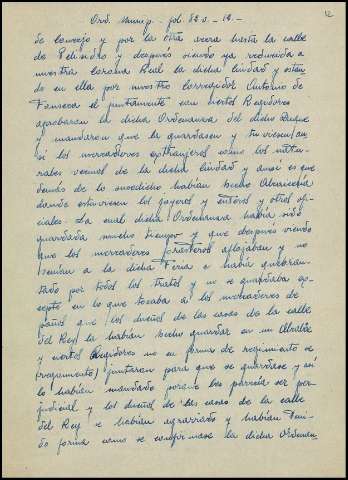 Ord. Munip. fol 82 v. - 12. -
12
de Concejo y por la otra acera hasta la calle
de Pelindro y después siendo ya reducida a
nuestra Corona Real la dicha ciudad y estan
do en ella por nuestro Corregidor Antonio de
Fonseca el juntamente con ciertos Regidores
aprobaron la dicha Ordenanza del dicho Duque
y mandaron que la guardasen y tuviesen an
si los mercaderes extranjeros como los natu-
rales vecinos de la dicha ciudad y ansi es que
demás de lo susodicho habían hecho Alcaicería
donde estuviesen los joyeros y otros ofi-
ciales. La cual dicha Ordenanza había sido
guardada mucho tiempo y que después viendo
que los mercaderes forasteros aflojaban y no
venían a la dicha Feria e había quebran-
tado por todos los tratos y no se guardaba ex-
cepto en lo que tocaba a los mercaderes de
paños que los dueños de las casas de la calle
del Rey la habían hecho guardar en un Alcalde
y ciertos Regidores no en forma de regimiento se
(regamento) juntaron para que se guardase y así
lo habían mandado porque les parecía ser per-
judicial y los dueños de las casas de la calle
del Rey se habían agraviado y habían teni-
do forma como se confirmase la dicha Ordenan